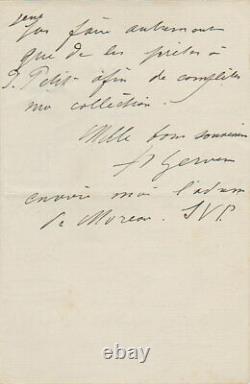 pas faire autrement
que de les prêter à
G. Petit afin de compléter
ma collection.
Mille bons souvenirs
H Gervex
envoie moi l'adresse
de Moreau. S.V.P.